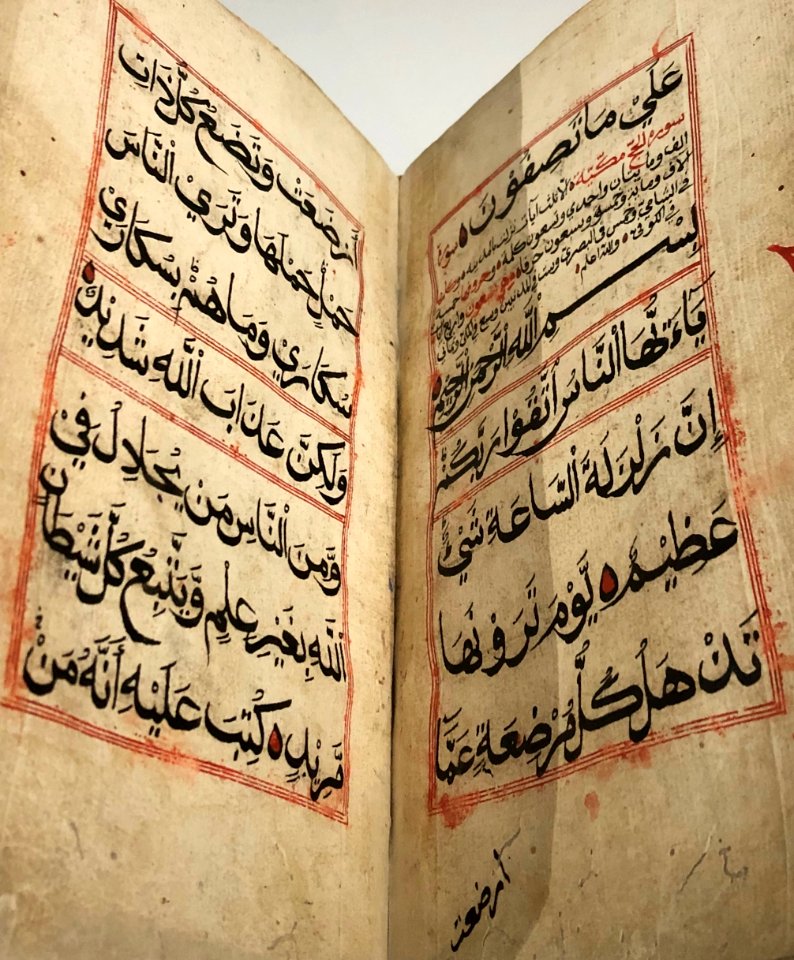 عَلَيْ مَا تَصِفُوْنَ
سورة الحج مكية
بِسْــمِ اللّٰهِ الرَّحْمٰنِ الرَّحِيْمِ
يَاءَيُّهَا النَّاسُ اتَّقُوْا رَبَّكُمْ
اِنَّ زَلْزَلَةَ السَّاعَةِ شَيْئٌ
عَظِيْمٌ يَّوْمَ تَرَوْنَهَا
تَذْهَلُ كُلُّ مُرْضِعَةٍ عَمَّا
ارضعت
أَرْضَعَتْ وَتَضَعُ كُلُّ ذَاتِ
حَمْلٍ حَمْلَهَا وَتَرَيْ النَّاسَ
سُكَارَيْ وَمَا هُمْ بِسُكَارَيْ
وَلٰكِنَّ عَذَابَ اللّٰهِ شَدِيْدٌ
وَّمِنَ النَّاسِ مَنْ يُّجَادِلُ فِيْ
اللّٰهِ بِغَيْرِ عِلْمٍ وَّيَتَّبِعُ كُلَّ شَيْطَانٍ
مَّرِيْدٍ كُتِبَ عَلَيْهِ أَنَّهُ مَنْ